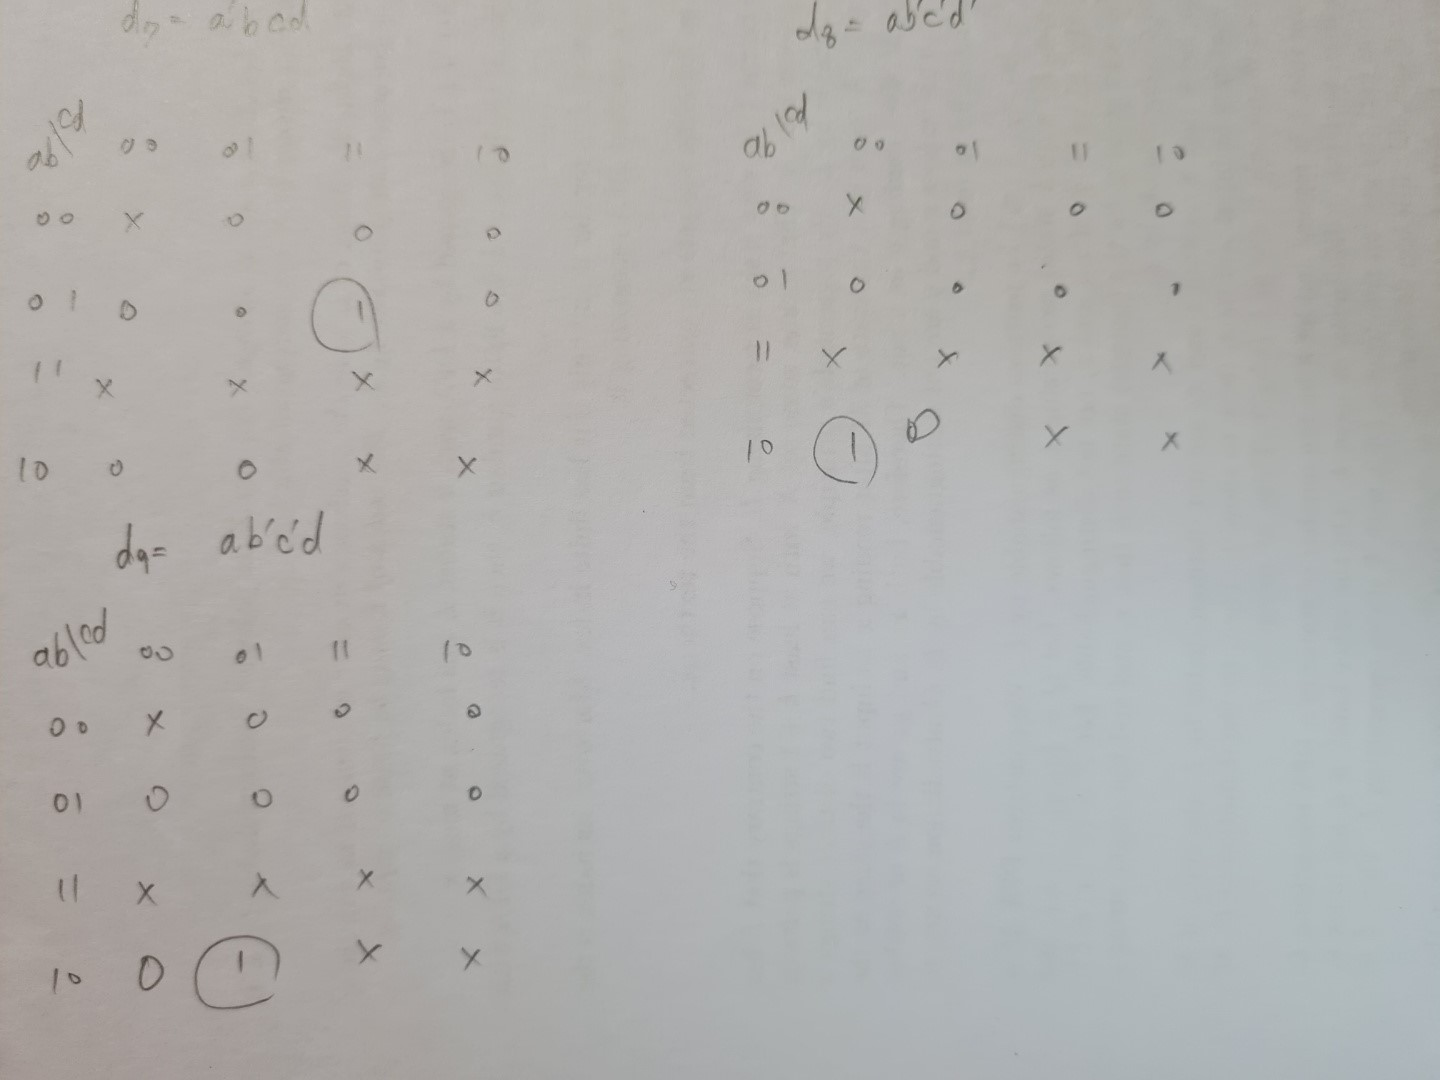 d7= a'bcd
d8= ab'c'd'
ab\cd 00 01 11 10
00 x 0 0 0
01 0 0 1 0
11 x x x x
10 0 0 x x
ab\cd 00 01 11 10
00 x 0 0 0
01 0 0 0 0
11 x x x x
10 1 0 x x
d9= ab'c'd
ab\cd 00 01 11 10
00 x 0 0 0
01 0 0 0 0
11 x x x x
10 0 1 x x